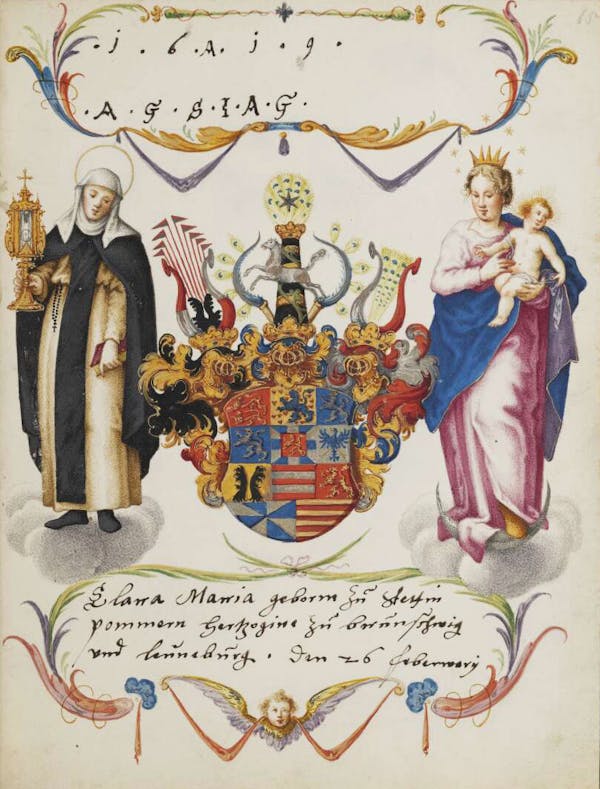 · 1 · 6 A 1 · 9 ·
· A · G · S · I · A · G ·
65
Clara Maria geborne zů Stettin
pommern hertzogine zů brunschwig
und leuneburg · den 26 feberwary